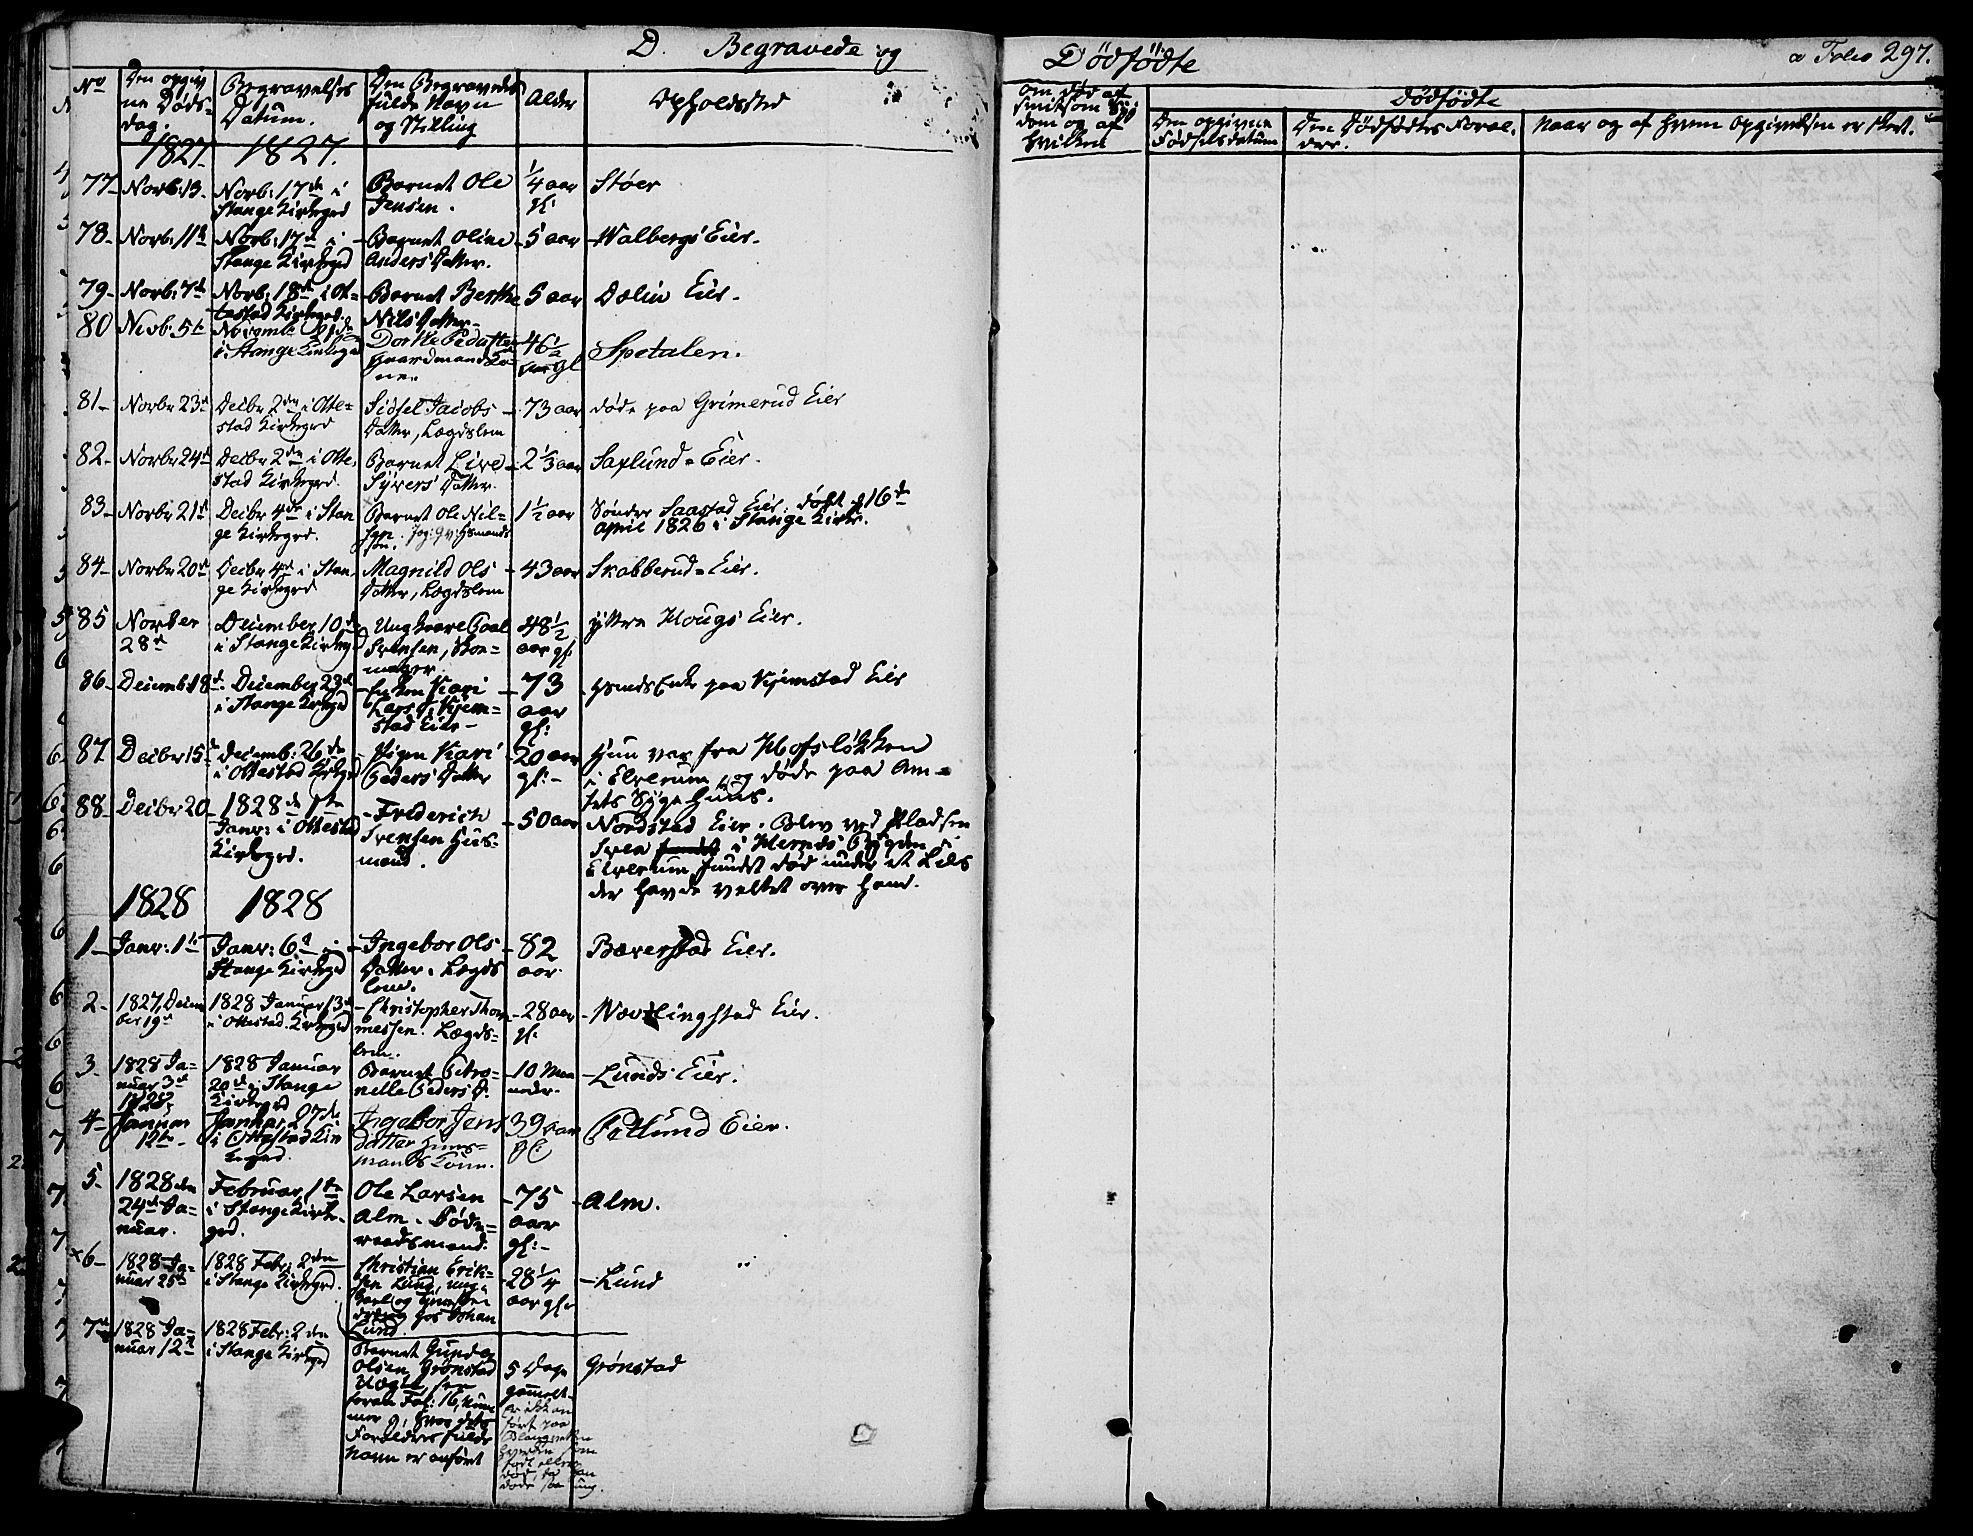 D. Begravede og Dødfødte
a Folio 297.
No
Den opgivne Dødsdag.
Begravelses Datum.
Den Begravedes fulde Navn og Stilling
Alder
Opholdssted
Dødfødte
Den opgivne Fødselsdatum
Den Dødfødtes Forældre.
Naar og af hvem Opgivelsen er skeet.
1827 1827.
77 Novb: 13. Novb: 17de i Stange Kirkegrd Barnet Ole Jensen. 1/4 aar gl: Støer
78 Novb: 11te Novb: 17de i Stange Kirkegrd Barnet Oline Anders Datter. 5 aar Walbergs Eier.
79 Novb: 7de Novb: 18de i Ottestad Kirkegrd. Barnet Berthe Nils Datter. 5 aar Dælin Eier.
80 Novb. 5te i Stange Kirkegrd Dorthe Gaardmands Kone 46 1/2 aar gl Spetalen.
81 Novbr 23de Decbr 2den i Ottestad Kirkegrd Sidsel Jacobs Datter, Lægdslem 73 aar døde paa Grimerud Eier
82 Novbr 24de Decbr 2den i Ottestad Kirkegrd. Barnet Live Syvers Datter. 2 1/3 aar Saxlund Eier.
83 Novbr 21de Decbr 4de i Stange Kirkegrd. Barnet Ole Nilsen. 1 1/2 aar Søndre Saastad Eier. døbt d 16de April 1826 i Stange Kirke.
84 Novbr 20de Decbr 4de i Stange Kirkegrd Magnild Ols Datter, Lægdslem 43 aar Skabberud Eier.
85 November 28de December 10de i Stange Kirkegrd Ungkarl Poul Svensen, Skomager 48 1/2 aar gl: yttre Hougs Eier.
86 Decemb: 18de December 23de i Stange Kirkegrd Enken Kari Lars D. Kjemstad Eier 73 aar gl: Hsmds Enke paa Kjemstad Eier
87 Decbr 15de Decemb: 26de i Ottestad Kirkegrd Pigen Kari Peders Datter 20 aar gl: Hun var fra Hofsløkken i Elverum, og døde paa Amtets Syge Huus.
88 Decbr 20 1828 den 1te Janr: i Ottestad Kirkegrd. Frederich Svensen Husmand. 50 aar Nordstad Eier. Blev ved Pladsen Svea i Hernæs Bygden i Elverum fundet død under et Læs der havde veltet over ham.
1828 1828
1 Janr: 1te Janr: 6te i Stange Kirkegrd Ingebor Ols Datter. Lægdslem. 82 aar. Bæverstad Eier.
2 1827, December 19de 1828 Januar 13de i Ottestad Kirkegrd Christopher Thommessen. Lægdslem. 28 aar gl: Nævlingstad Eier.
3 1828 Januar 3de 1828 Januar 20de i Stange Kirkegrd Barnet Petronelle Peders D. 10 Maaneder. Lunds Eier.
4 1828 Januar 12te Januar 27de i Ottestad Kirkegrd. Ingebor Jens Datter Huusmands Kone. 39 aar gl: Petlund Eier.
5 1828 den 24de Januar. Februar 1te i Stange Kirkegrd. Ole Larsen Alm. Føderaadsmand. 75 aar gl: Alm.
x6 1828 Januar 25de 1828 Febr: 2den i Stange Kirkegrd. Christian Eriksen Lund, ungkarl og hos Johan Lund. 28 1/4 aar gl: Lund
7 1828 Januar 12te 1828 Febr: 2den i Stange Kirkegrd Barnet Gunder Olsen Grønstad foran Fol: 16, Nummer 9, hvor dets Forældres fulde Navn er anført 5 Dage gammelt Grønstad